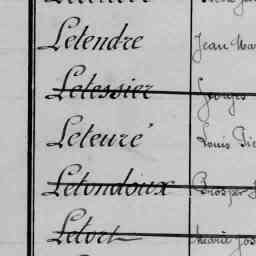 Letendre Jean Mar
Letessier Georges
Leteuré Louis Pie
Letondoux Prosper
Letort Marie Jos